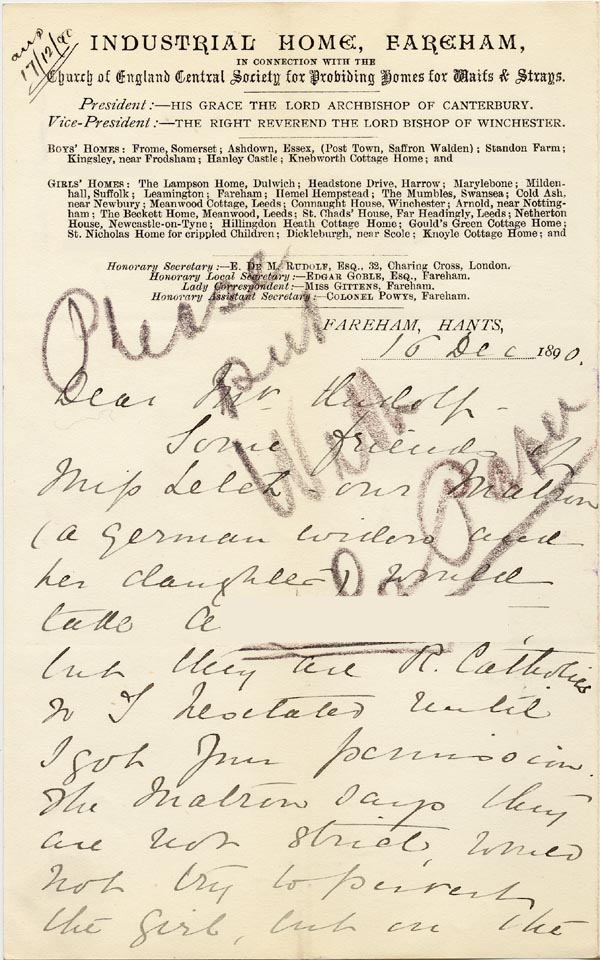 ans
17/12/90
INDUSTRIAL HOME, FAREHAM,
IN CONNECTION WITH THE
Church of England Central Society for Probiding Homes for Waifs & Strays.
President:—HIS GRACE THE LORD ARCHBISHOP OF CANTERBURY.
Vice-President:—THE RIGHT REVEREND THE LORD BISHOP OF WINCHESTER.
BOYS' HOMES: Frome, Somerset; Ashdown, Essex, (Post Town, Saffron Walden); Standon Farm;
Kingsley, near Frodsham; Hanley Castle; Knebworth Cottage Home; and
GIRLS' HOMES: The Lampson Home, Dulwich; Headstone Drive, Harrow; Marylebone; Milden-
hall, Suffolk; Leamington; Fareham; Hemel Hempstead; The Mumbles, Swansea; Cold Ash,
near Newbury; Meanwood Cottage, Leeds; Connaught House, Winchester; Arnold, near Notting-
ham; The Beckett Home, Meanwood, Leeds; St. Chads' House, Far Headingly, Leeds; Netherton
House, Newcastle-on-Tyne; Hillingdon Heath Cottage Home; Gould's Green Cottage Home;
St. Nicholas Home for crippled Children; Dickleburgh, near Scole; Knoyle Cottage Home; and
Honorary Secretary:—E. DE M. RUDOLF, ESQ., 32, Charing Cross, London.
Honorary Local Secretary:—EDGAR GOBLE, ESQ., Fareham.
Lady Correspondent:—MISS GITTENS, Fareham.
Honorary Assistant Secretary:—COLONEL POWYS, Fareham.
Please
put
With
Paper
FAREHAM, HANTS,
16 Dec 1890.
Dear Mr. Rudolf -
Some friends of
Miss Leech - our Matron
(a German widow and
her daughter) would
take a
but they are R. Catholics
so I hesitated until
I got your permission.
The Matron says they
are not strict, would
not try to pervert
the girl, but on the